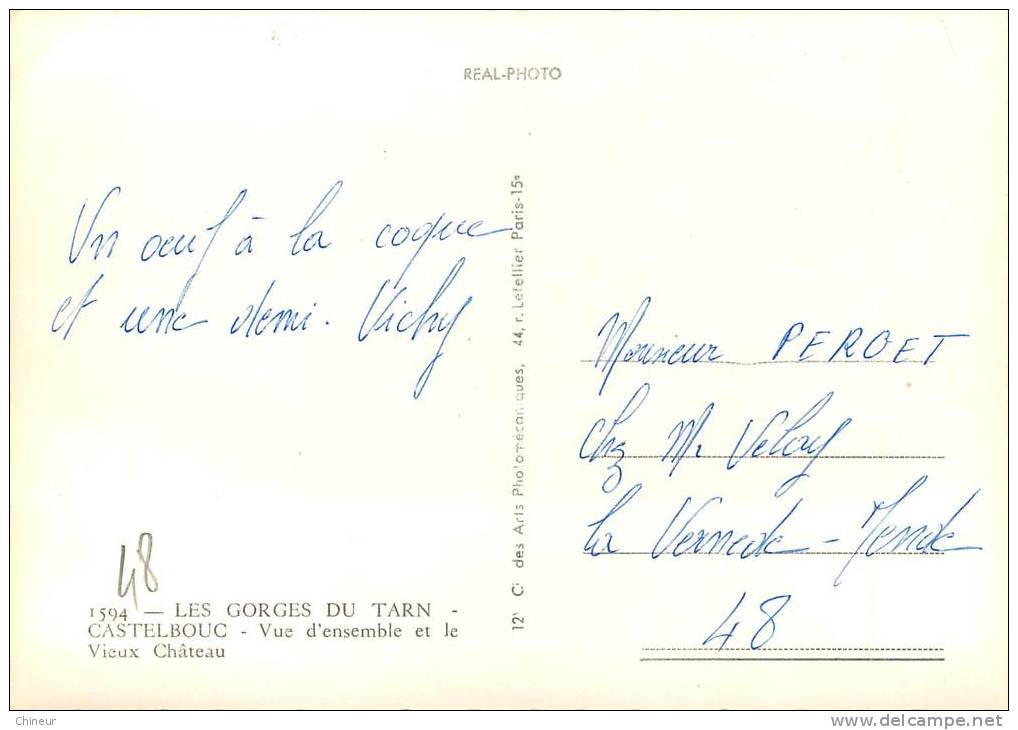 REAL-PHOTO
Un oeuf à la coque
et une demi-Vichy
44, r. Letellier Paris-15e
des Arts Photomécaniques,
Monsieur PEROET
chez M. Velay
la Vernede - Mende
48
48
1594 — LES GORGES DU TARN -
CASTELBOUC - Vue d'ensemble et le
Vieux Château
Chineur
www.delcampe.net